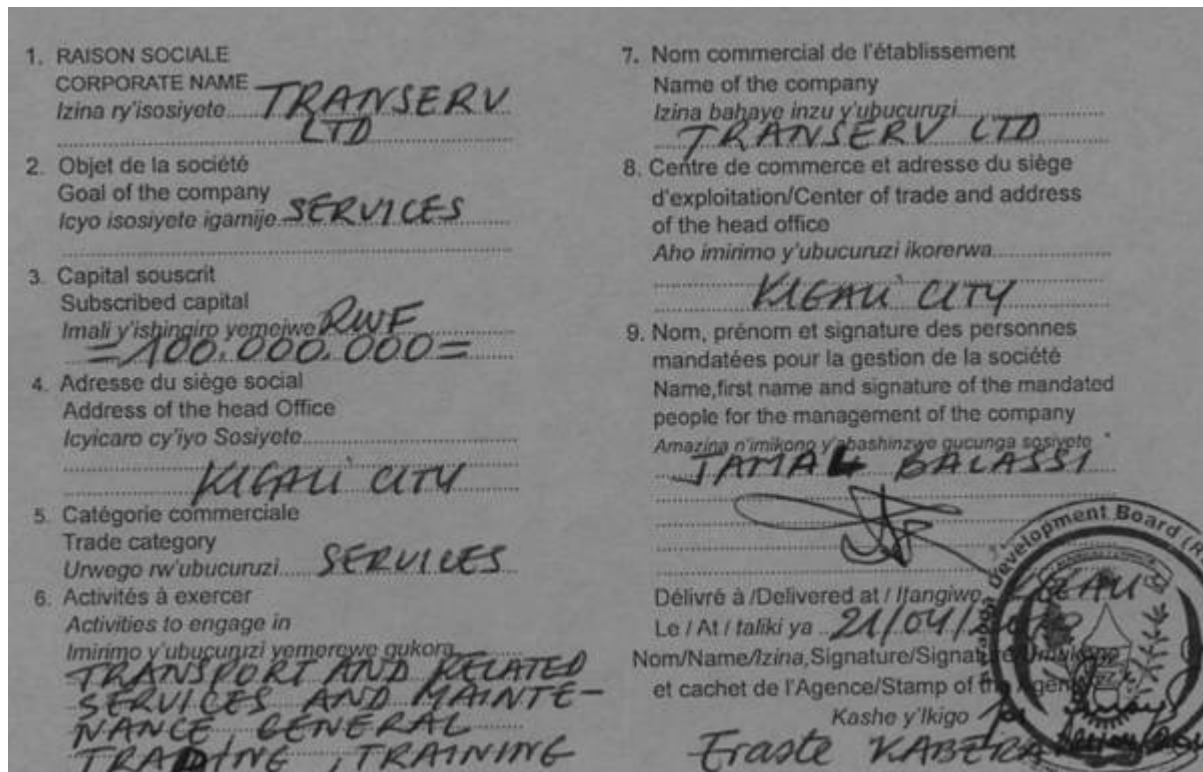 1. RAISON SOCIALE
CORPORATE NAME
Izina ry'isosiyete TRANSERV
LTD
2. Objet de la société
Goal of the company
Icyo isosiyete igamije SERVICES
3. Capital souscrit
Subscribed capital
Imali y'ishingiro yemejwe RWF
=100.000.000=
4. Adresse du siège social
Address of the head Office
Icyicaro cy'iyo Sosiyete
KIGALI CITY
5. Catégorie commerciale
Trade category
Urwego rw'ubucuruzi SERVICES
6. Activités à exercer
Activities to engage in
Imirimo y'ubucuruzi yemerewe gukora
TRANSPORT AND RELATED
SERVICES AND MAINTE-
NANCE, GENERAL
TRADING, TRAINING
7. Nom commercial de l'établissement
Name of the company
Izina bahaye inzu y'ubucuruzi
TRANSERV LTD
8. Centre de commerce et adresse du siège
d'exploitation/Center of trade and address
of the head office
Aho imirimo y'ubucuruzi ikorerwa
KIGALI CITY
9. Nom, prénom et signature des personnes
mandatées pour la gestion de la société
Name,first name and signature of the mandated
people for the management of the company
Amazina n'imikono y'abashinzwe gucunga sosiyete
JAMAL BALASSI
Délivré à /Delivered at / Itangiwe
Le / At / taliki ya 21/04/
Nom/Name/Izina,Signature/Signature/Umukono
et cachet de l'Agence/Stamp of the Agency
Kashe y'Ikigo
Eraste KABERA
Development Board